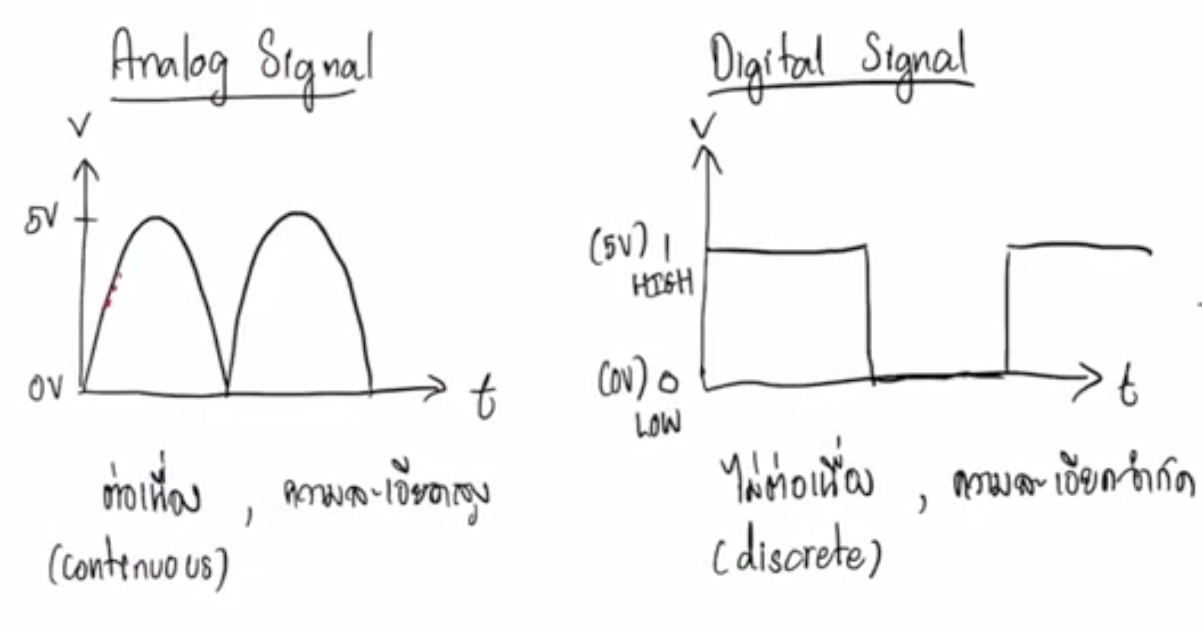 Analog Signal
V
5V
0V
t
ต่อเนื่อง , ความละเอียดสูง
(continuous)
Digital Signal
V
(5V) 1
HIGH
(0V) 0
LOW
t
ไม่ต่อเนื่อง , ความละเอียดจำกัด
(discrete)